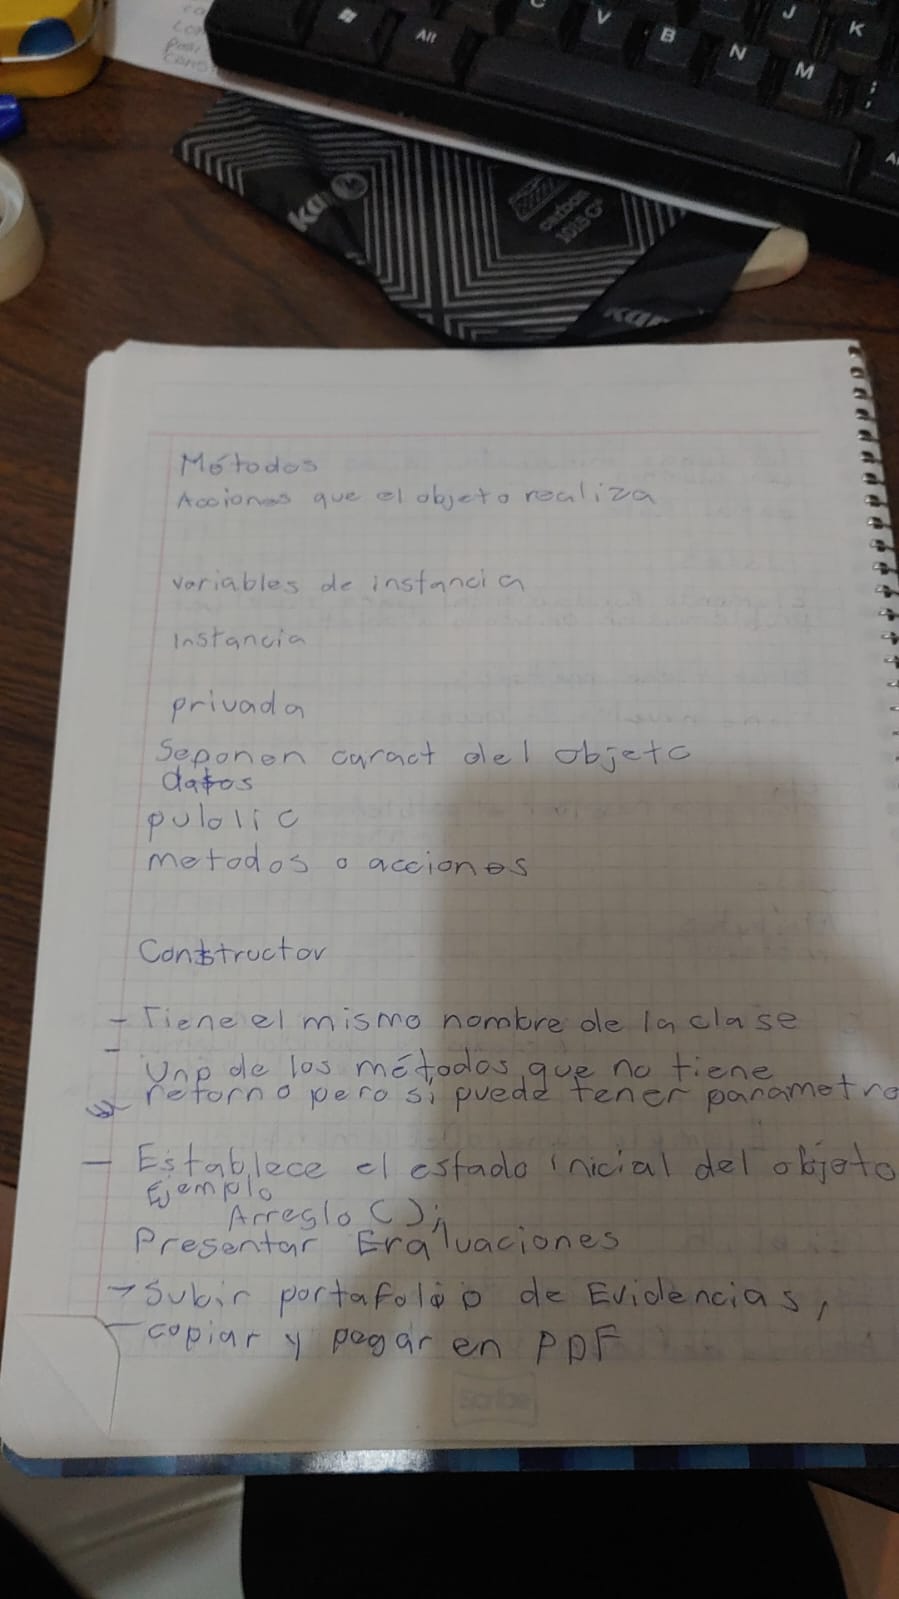 Alt
C
V
B
N
M
J
K
carbon
1015 C*
Métodos
Acciones que el objeto realiza
variables de instancia
Instancia
privada
Se ponen caract del objeto
datos
public
metodos o acciones
Constructor
- Tiene el mismo nombre de la clase
- Uno de los métodos que no tiene
retorno pero si puede tener parametro
- Establece el estado inicial del objeto
Ejemplo
Arreglo ( );
Presentar Evaluaciones
- Subir portafolio de Evidencias,
- copiar y pegar en PDF
Scribe